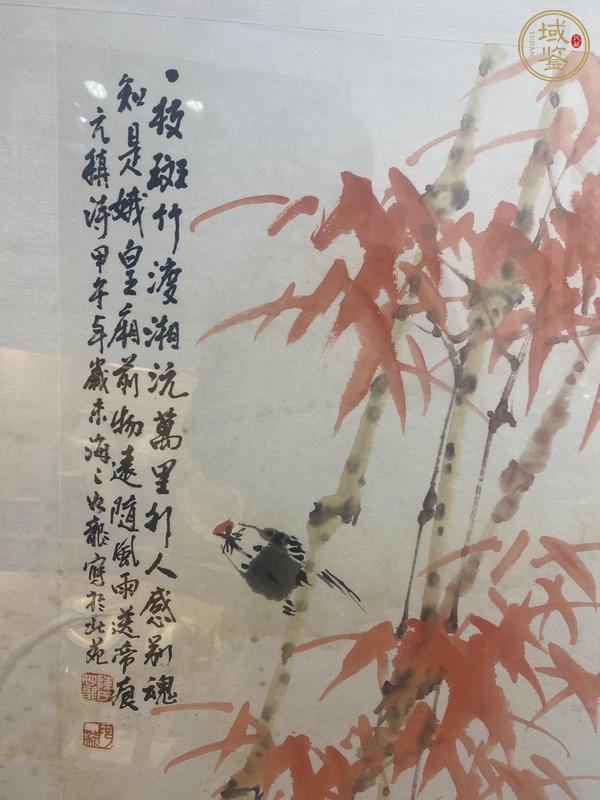 一枝斑竹渡湘沅萬里行人感別魂
知是娥皇廟前物遠隨風雨送帝痕
元稹詩甲午年歲末海寫於北苑
域鉴